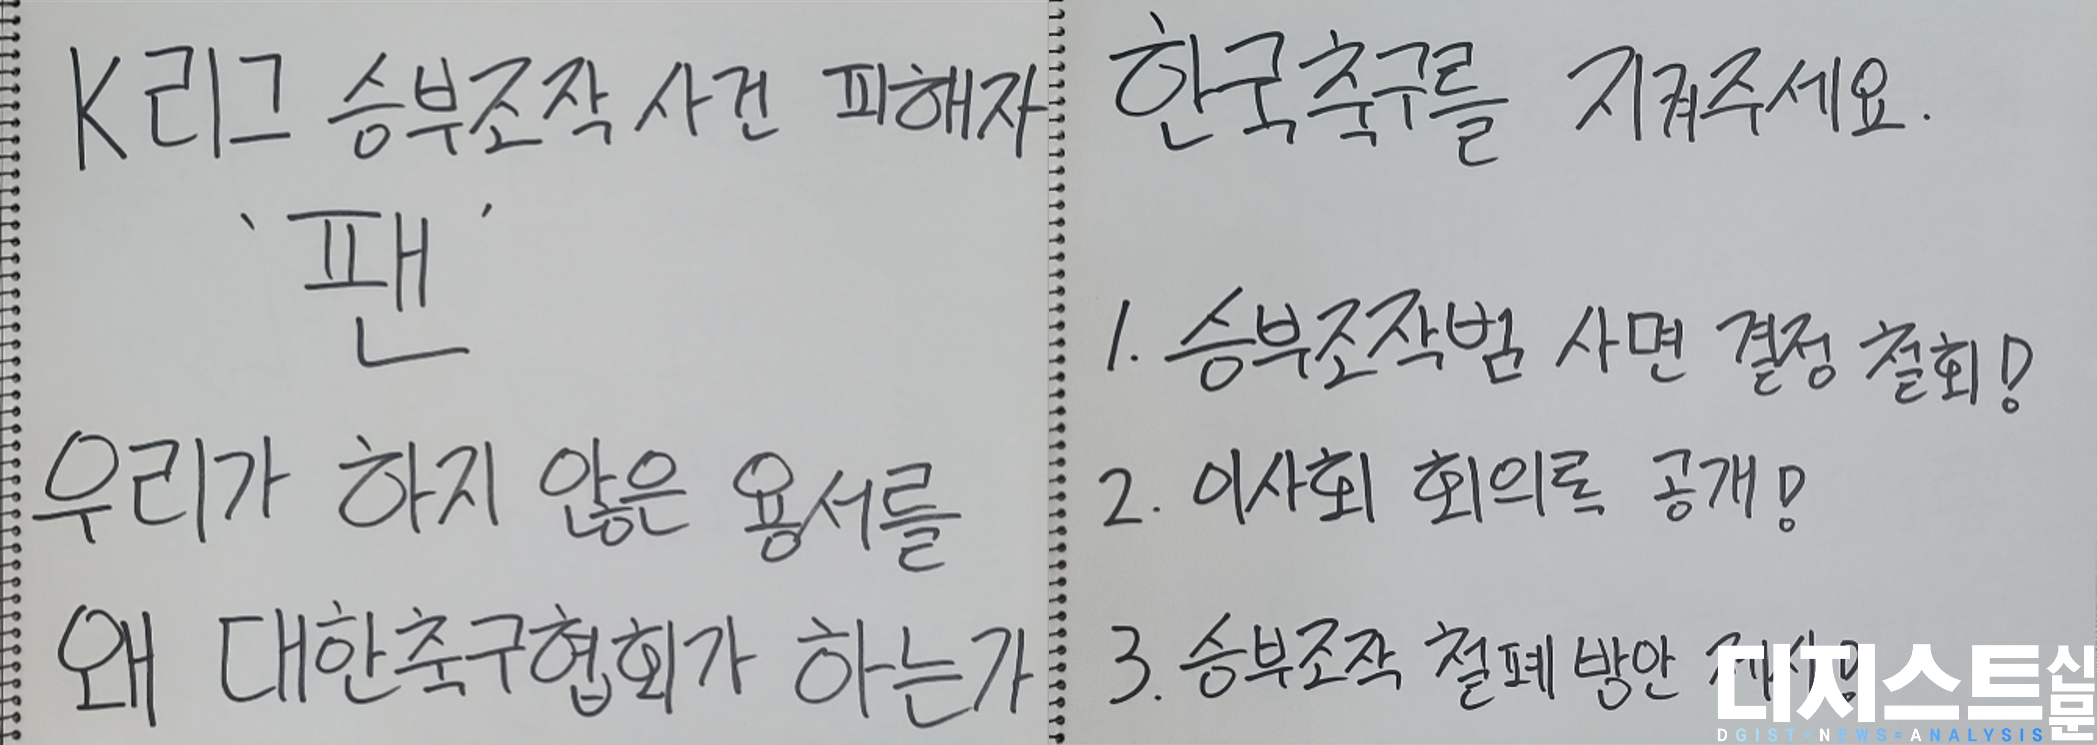 K리그 승부조작 사건 피해자
'팬'
우리가 하지 않은 용서를
왜 대한축구협회가 하는가
한국축구를 지켜주세요.
1. 승부조작범 사면 결정 철회!
2. 이사회 회의록 공개!
3. 승부조작 철폐 방안
디지스트신문
DGIST=NEWS=ANALYSIS